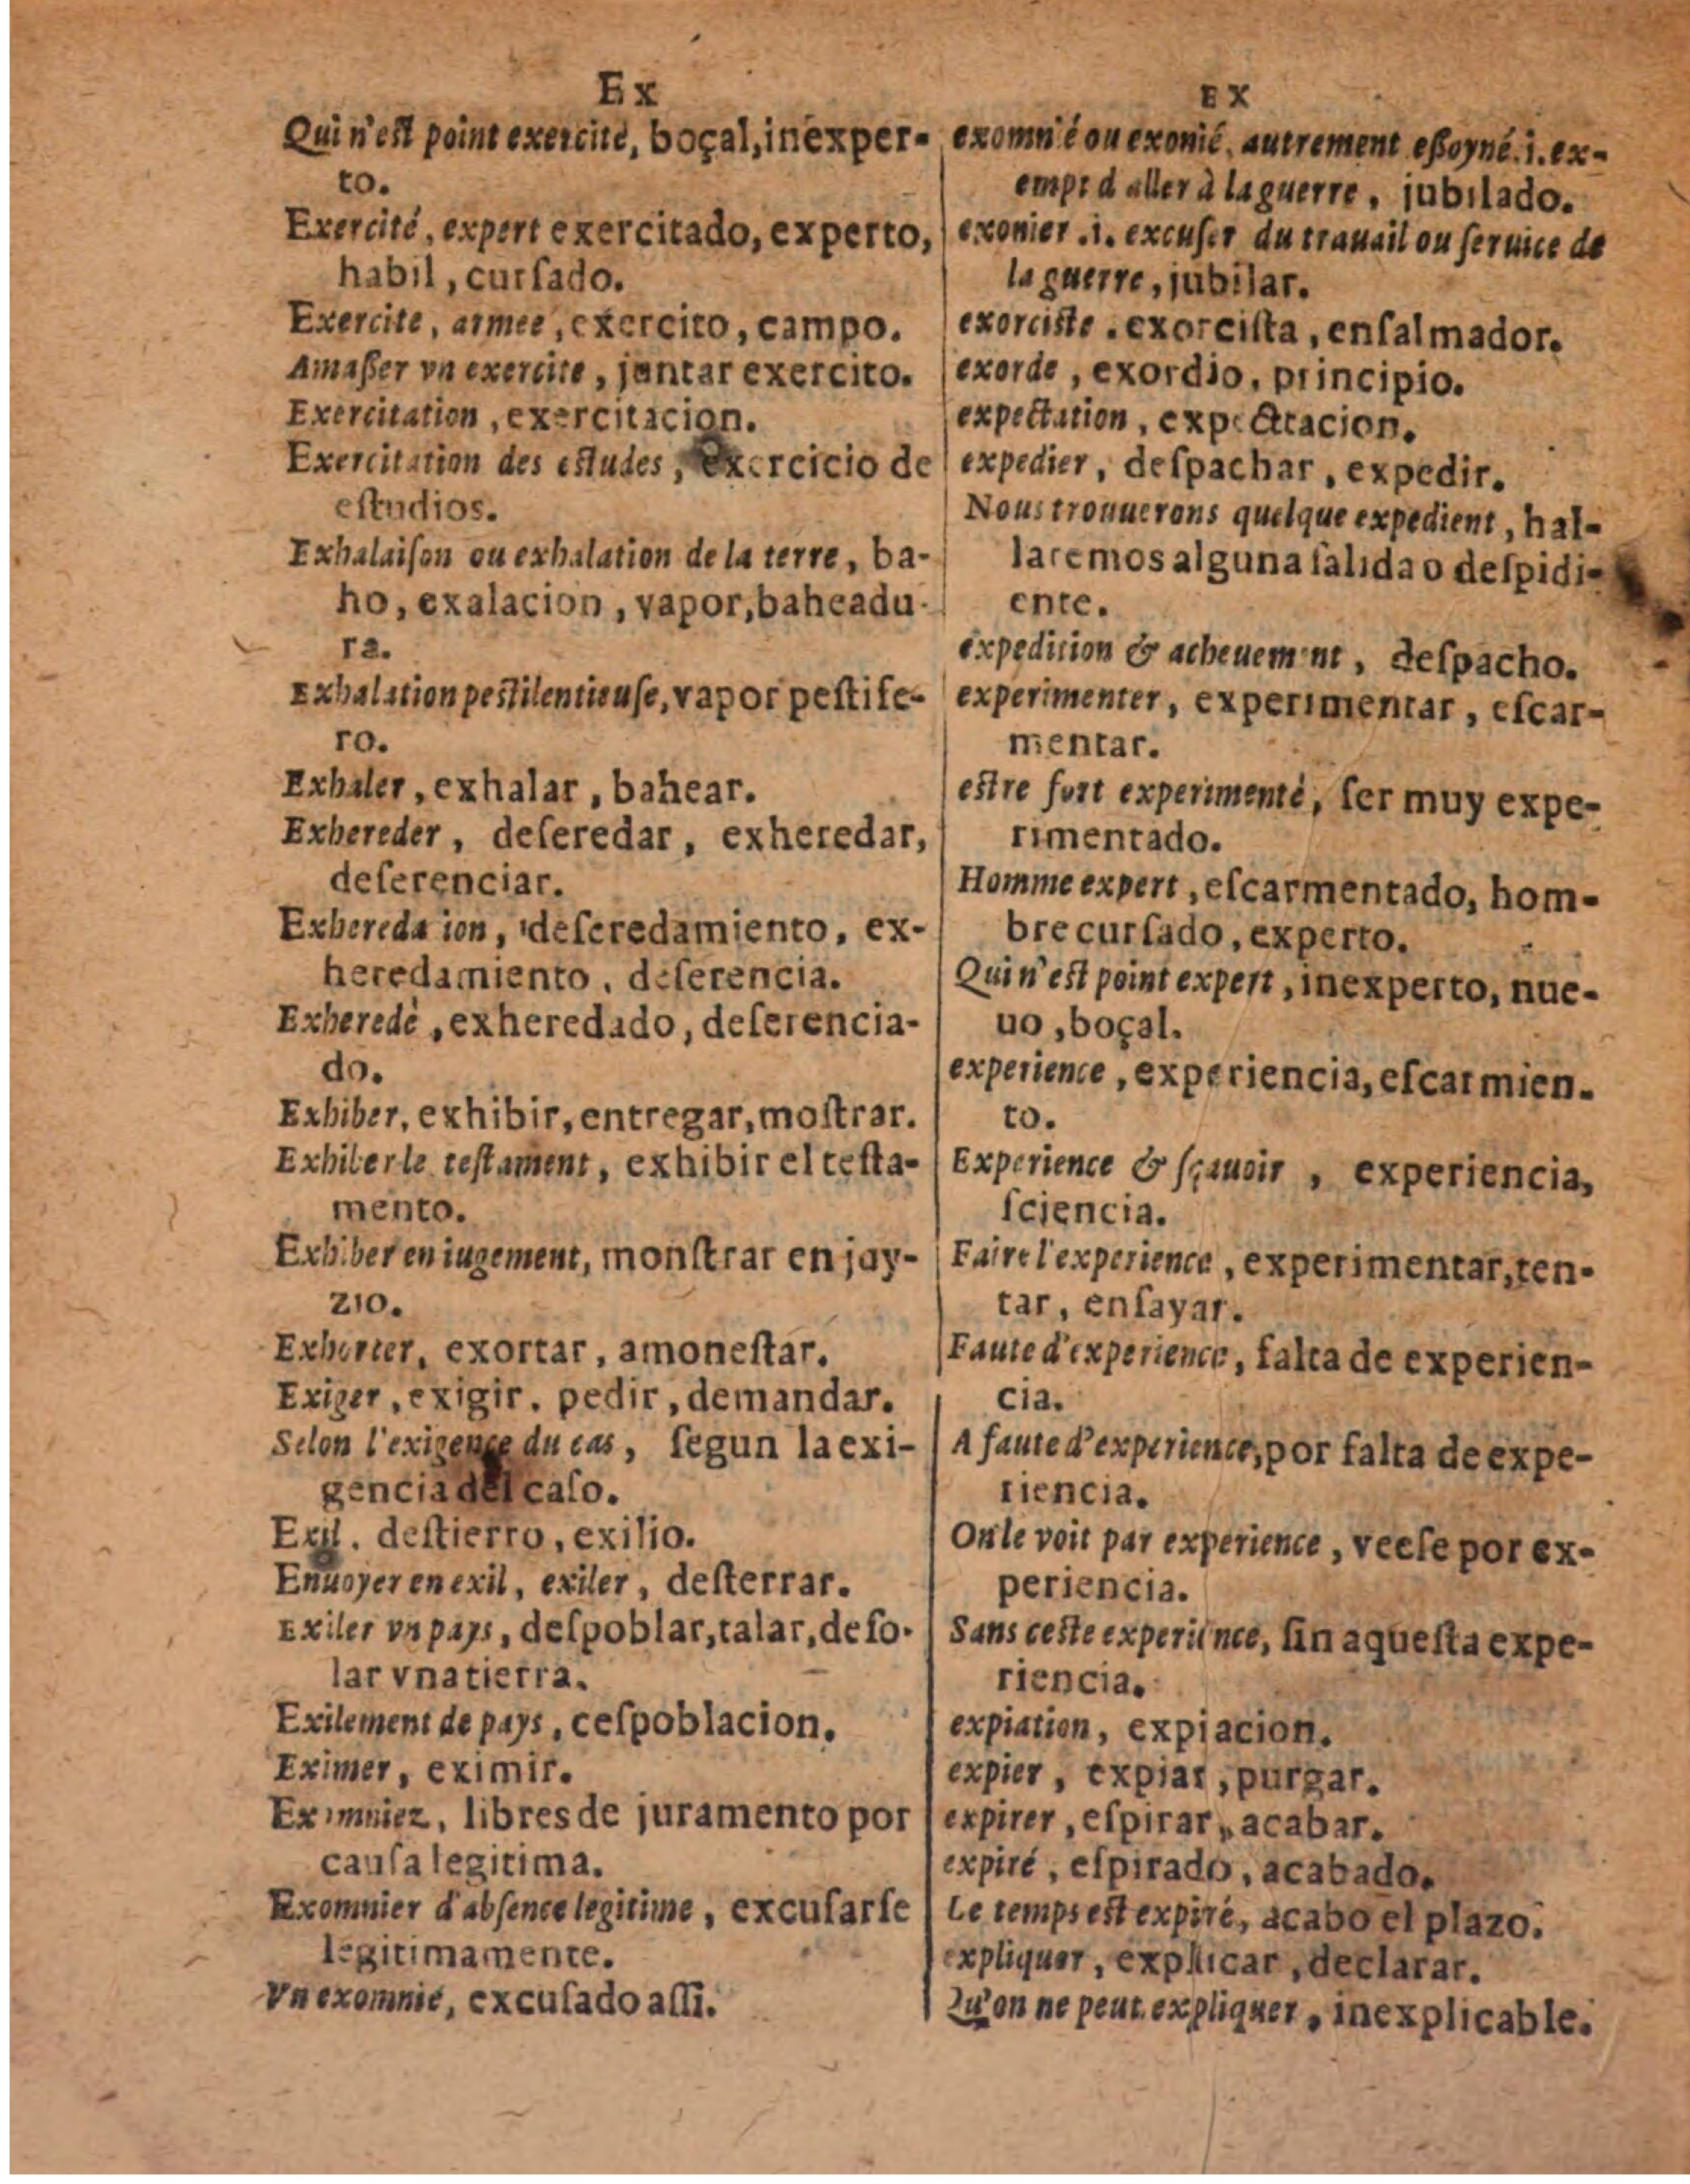 Ex
Qui n'eſt point exercité, boçal, inexper-
to.
Exercité, expert exercitado, experto,
habil, curſado.
Exercite, armee, exercito, campo.
Amaßer vn exercite, juntar exercito.
Exercitation, exercitacion.
Exercitation des eſtudes, exercicio de
eſtudios.
Exhalaiſon ou exhalation de la terre, ba-
ho, exalacion, vapor, baheadu-
ra.
Exhalation peſtilentieuſe, vapor peſtife-
ro.
Exhaler, exhalar, bahear.
Exhereder, deſeredar, exheredar,
deſerenciar.
Exhereda ion, deſeredamiento, ex-
heredamiento, deſerencia.
Exheredè, exheredado, deſerencia-
do.
Exhiber, exhibir, entregar, moſtrar.
Exhiber le teſtament, exhibir el teſta-
mento.
Exhiber en iugement, monſtrar en juy-
zio.
Exhorter, exortar, amoneſtar.
Exiger, exigir, pedir, demandar.
Selon l'exigence du cas, ſegun la exi-
gencia del caſo.
Exil, deſtierro, exilio.
Enuoyer en exil, exiler, deſterrar.
Exiler vn pays, deſpoblar, talar, deſo-
lar vna tierra.
Exilement de pays, ceſpoblacion.
Eximer, eximir.
Exomniez, libres de juramento por
cauſa legitima.
Exomnier d'abſence legitime, excuſarſe
legitimamente.
Vn exomnié, excuſado aſſi.
EX
exomnié ou exonié, autrement eßoyné .i. ex-
empt d aller à la guerre, jubilado.
exonier .i. excuſer du trauail ou ſeruice de
la guerre, jubilar.
exorciſte. exorciſta, enſalmador.
exorde, exordio, principio.
expectation, expectacion.
expedier, deſpachar, expedir.
Nous trouuerons quelque expedient, hal-
laremos alguna ſalida o deſpidi-
ente.
expedition & acheuement, deſpacho.
experimenter, experimentar, eſcar-
mentar.
eſtre fort experimenté, ſer muy expe-
rimentado.
Homme expert, eſcarmentado, hom-
bre curſado, experto.
Qui n'eſt point expert, inexperto, nue-
uo, boçal.
experience, experiencia, eſcarmien-
to.
Experience & ſçauoir, experiencia,
ſciencia.
Faire l'experience, experimentar, ten-
tar, enſayar.
Faute d'experience, falta de experien-
cia.
A faute d'experience, por falta de expe-
riencia.
On le voit par experience, veeſe por ex-
periencia.
Sans ceſte experience, ſin aqueſta expe-
riencia.
expiation, expiacion.
expier, expiar, purgar.
expirer, eſpirar, acabar.
expiré, eſpirado, acabado.
Le temps eſt expiré, acabo el plazo.
expliquer, explicar, declarar.
Qu'on ne peut expliquer, inexplicable.